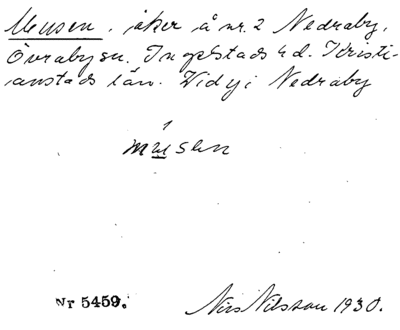 Musen, åker å nr. 2 Nedraby,
Övraby sn. Ingelstads hd. Kristi-
anstads län. Vidy i Nedraby
músen
Nr 5459.
Nils Nilsson 1930.